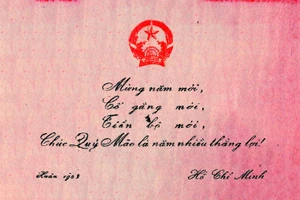 Mừng năm mới,
Cố gắng mới,
Tiến bộ mới,
Chúc Quý Mão là năm nhiều thắng lợi!
Xuân 1963
Hồ Chí Minh